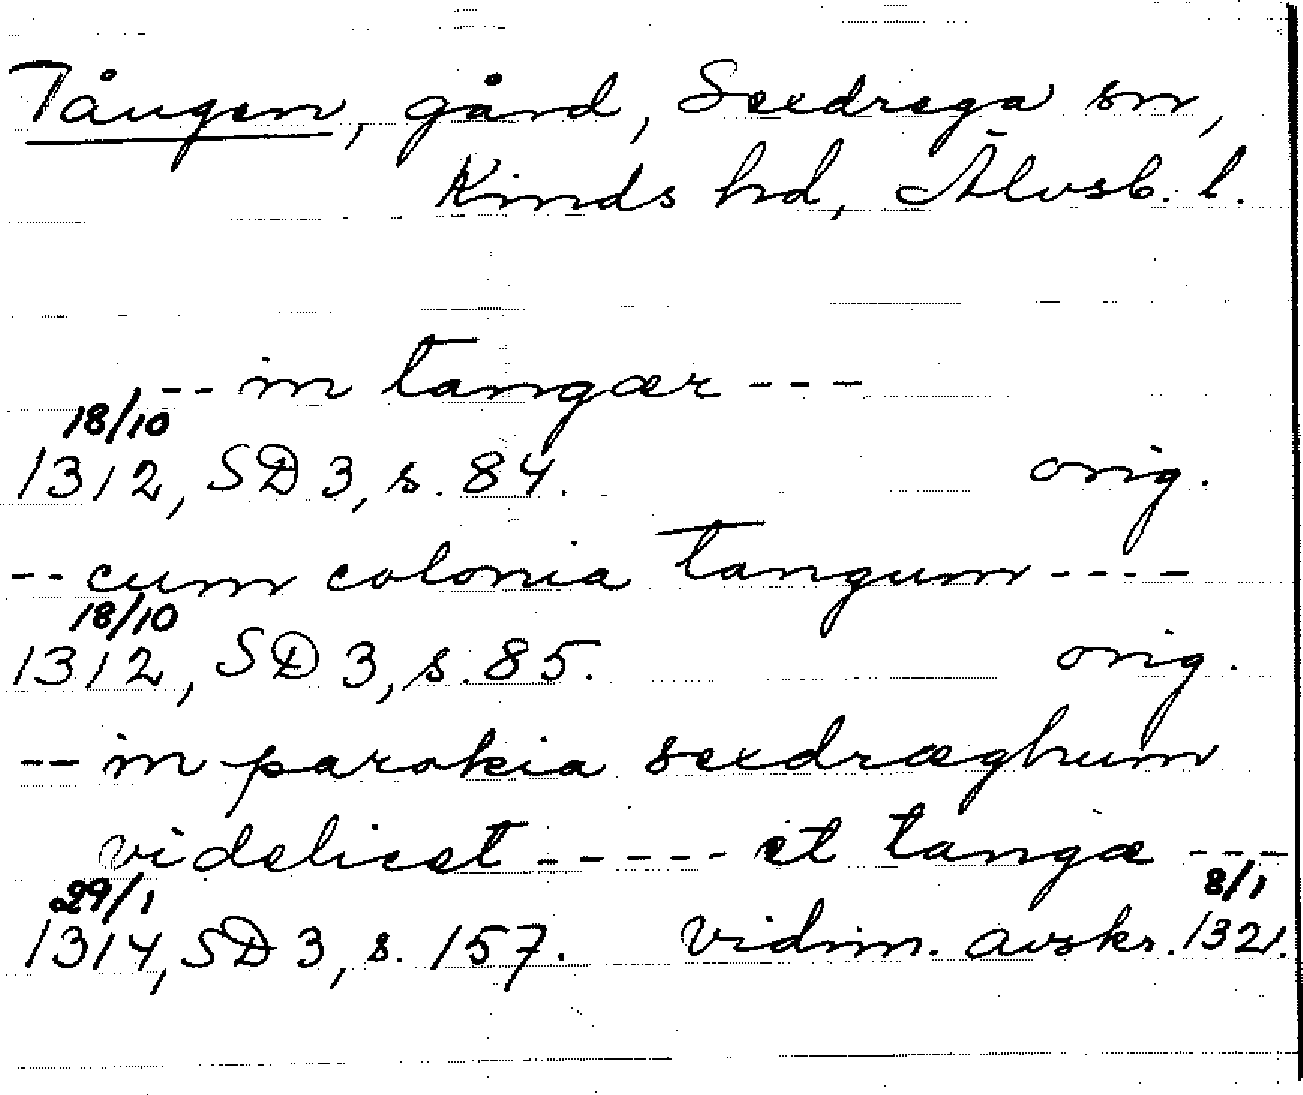 Tången, gård, Sexdrega sn,
Kinds hd, Älvsb. l.
-- in tangær ---
18/10
1312, SD 3, s. 84. orig.
-- cum colonia tangum ----
18/10
1312, SD 3, s. 85. orig.
-- in parokia sexdræghum
videlicet ------ et tangæ ---
29/1 8/1
1314, SD 3, s. 157. vidim. avskr. 1321.